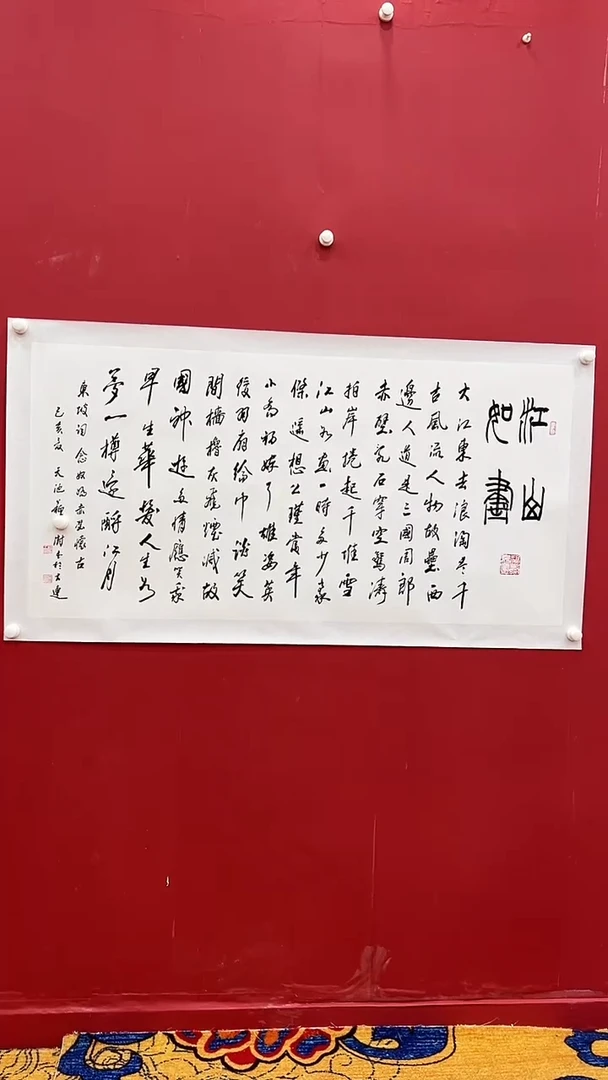 江山
如畫
大江東去浪淘尽千
古風流人物故壘西
邊人道是三國周郎
赤壁乱石穿空驚濤
拍岸捲起千堆雪
江山如画一時多少豪
傑遥想公瑾當年
小喬初嫁了雄姿英
發羽扇綸巾談笑
間檣櫓灰飛煙滅故
國神遊多情應笑我
早生華髮人生如
夢一樽還酹江月
東坡詞念奴嬌赤壁懷古
己亥夏天池樹於大連